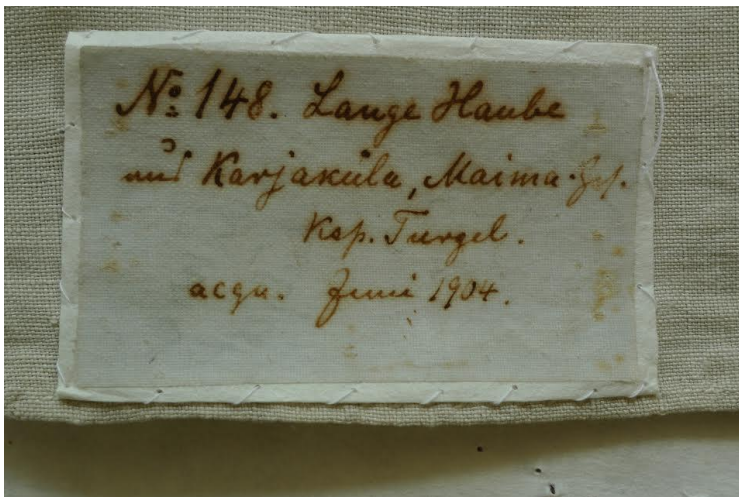 No. 148. Lange Haube
aus Karjaküla, Maima-Ges.
Ksp. Turgel.
acqu. Juni 1904.